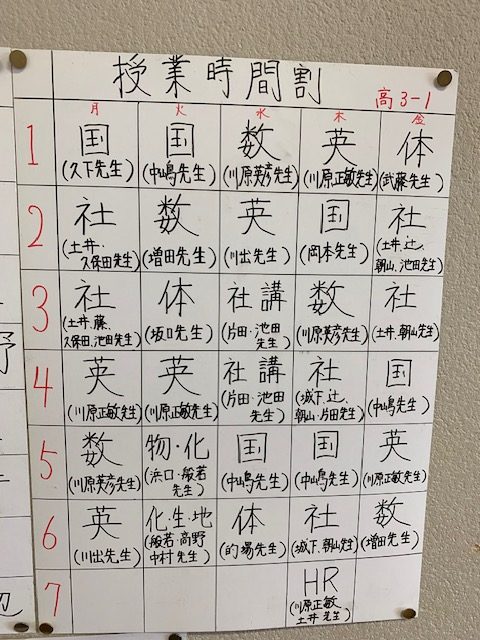 授業時間割
高3-1
月 火 水 木 金
1
国
(久下先生)
国
(中嶋先生)
数
(川原英彦先生)
英
(川原正敏先生)
体
(武藤先生)
2
社
(土井・
久保田先生)
数
(増田先生)
英
(川出先生)
国
(岡本先生)
社
(土井、辻、
朝山、池田先生)
3
社
(土井、藤、
久保田、池田先生)
体
(坂口先生)
社講
(片田・池田
先生)
数
(川原英彦先生)
社
(土井、朝山先生)
4
英
(川原正敏先生)
英
(川原正敏先生)
社講
(片田・池田
先生)
社
(城下、辻、
朝山・片田先生)
国
(中嶋先生)
5
数
(川原英彦先生)
物・化
(浜口・般若
先生)
国
(中嶋先生)
国
(中嶋先生)
英
(川原正敏先生)
6
英
(川出先生)
化・生・地
(般若・高野
中村先生)
体
(的場先生)
社
(城下、朝山先生)
数
(増田先生)
7
HR
(川原正敏
土井先生)
野
辺